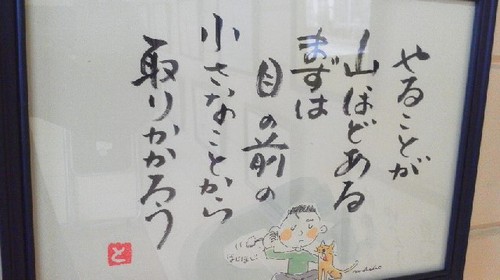 やることが
山ほどある
まずは
目の前の
小さなことから
取りかかろう
と